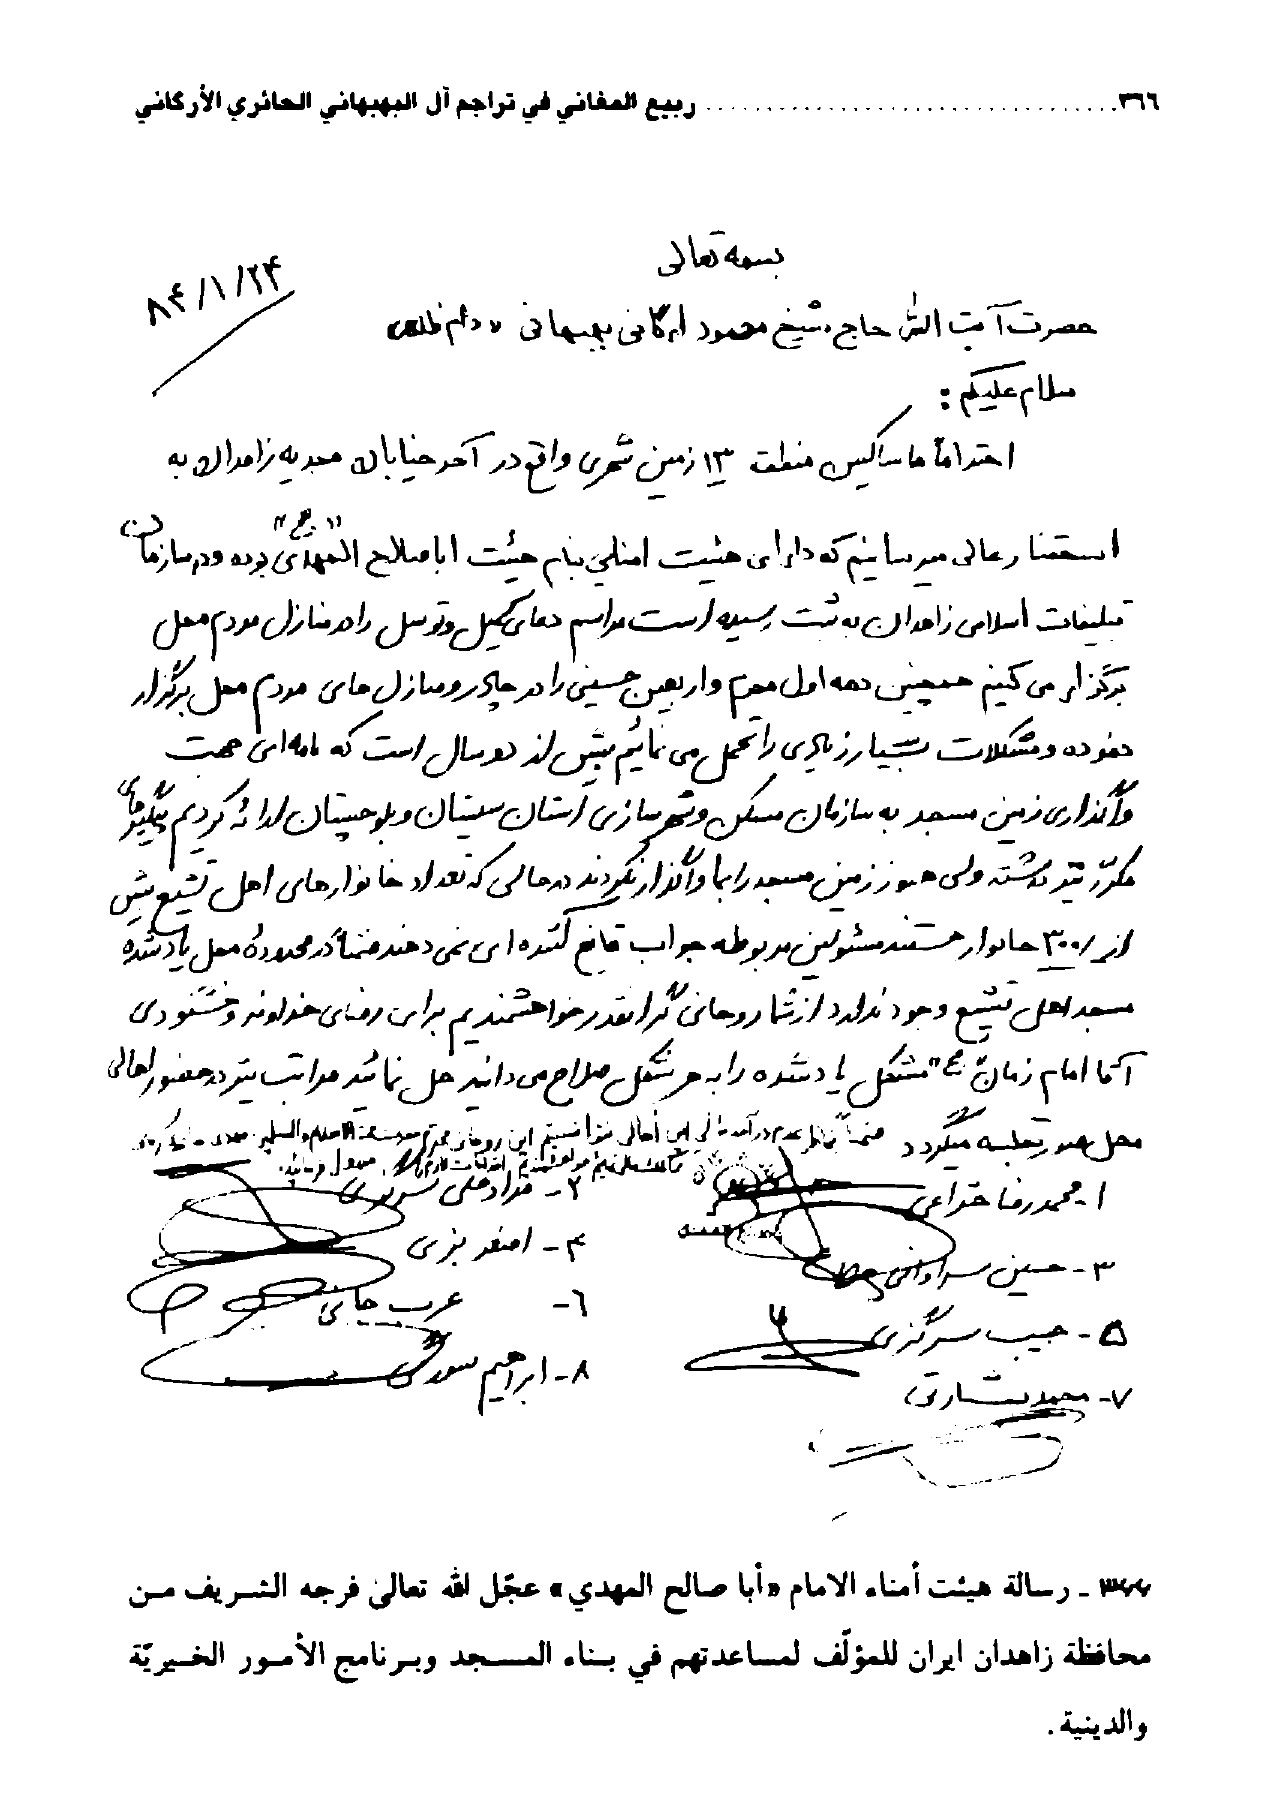 ٣٦٦ ........................................ ربيع المغاني في تراجم آل البهبهاني الحائري الأركاني
بسمه تعالی
۸۴/۱/۲۴
حضرت آیت الله حاج شیخ محمود ارگانی بهبهانی « دام ظله »
سلام علیکم :
احتراماً ما ساکنین منطقه ۱۳ زمین شهری واقع در آخر خیابان مجدیه زاهدان به
استحضار عالی میرسانیم که دارای هیئت امنایی بنام هیئت اباصالح المهدی "عج" بوده و در سازمان
تبلیغات اسلامی زاهدان به ثبت رسیده است مراسم دعای کمیل و توسل را در منازل مردم محل
برگزار می کنیم همچنین دهه اول محرم و اربعین حسینی را در چادر و منازل های مردم محل برگزار
نموده و مشکلات بسیار زیادی را تحمل می نمائیم بیش از دو سال است که نامه ای جهت
واگذاری زمین مسجد به سازمان مسکن و شهرسازی استان سیستان و بلوچستان ارائه کردیم پیگیریهای
مکرر نیز داشته ولی هنوز زمین مسجد را بما واگذار نکردند در حالی که تعداد خانوارهای اهل تشیع بیش
از ۳۰۰ خانوار هستند مسئولین مربوطه جواب قانع کننده ای نمی دهند ضمناً در محدوده محل یاد شده
مسجد اهل تشیع وجود ندارد از شما روحانی گرانقدر خواهشمندیم برای رضای خداوند و خشنودی
آقا امام زمان "عج" مشکل یاد شده را به هر شکل صلاح می دانید حل نمائید مراتب نیز در حضور اهالی
محل صورتجلسه میگردد ضمناً بخاطر عدم درآمد مالی این اهالی نتوانستیم این روحانی محترم
۱- محمدرضا خزاعی
۲- مرادعلی
۳- حسین سراوانی
۴- اصغر بزی
۵- حبیب سرگزی
۶- عرب جانی
۷- محمد بشارتی
۸- ابراهیم
٣٧٧ ـ رسالة هيئت أمناء الامام «أبا صالح المهدي» عجّل الله تعالى فرجه الشريف من
محافظة زاهدان ايران للمؤلّف لمساعدتهم في بناء المسجد وبرنامج الأمور الخيريّة
والدينية .